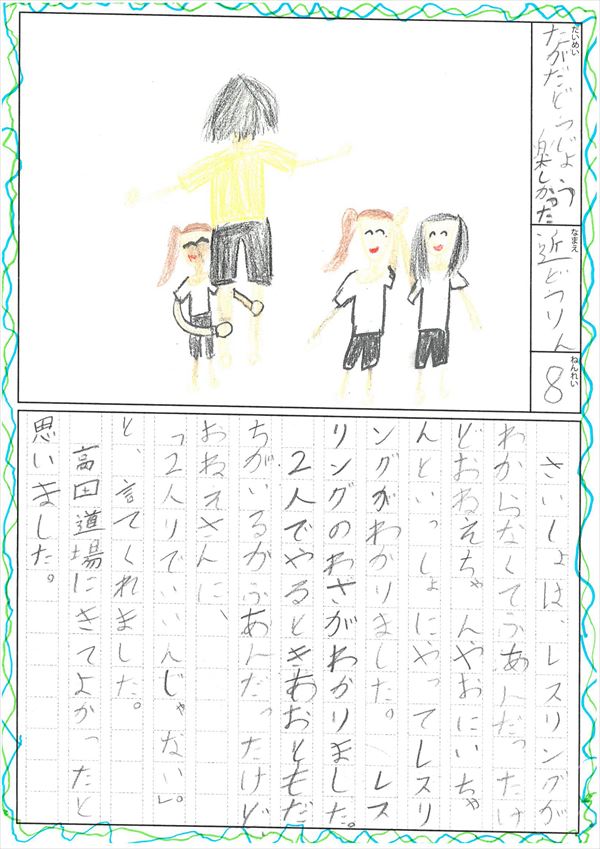 だいめい
たかだどうじょう
楽しかった
なまえ
近どうりん
ねんれい
8
さいしょは、レスリングが
わからなくてふあんだったけ
どおねえちゃんやおにいちゃ
んといっしょにやってレスリ
ングがわかりました。レス
リングのわざがわかりました。
2人でやるときわおともだ
ちがいるかふあんだったけど
おねえさんに、
「2人りでいいんじゃない」。
と、言てくれました。
高田道場にきてよかったと
思いました。